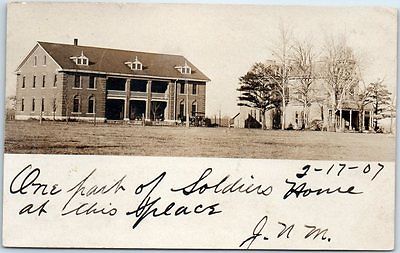 2-17-07
One part of Soldiers Home
at this place
J. N. M.